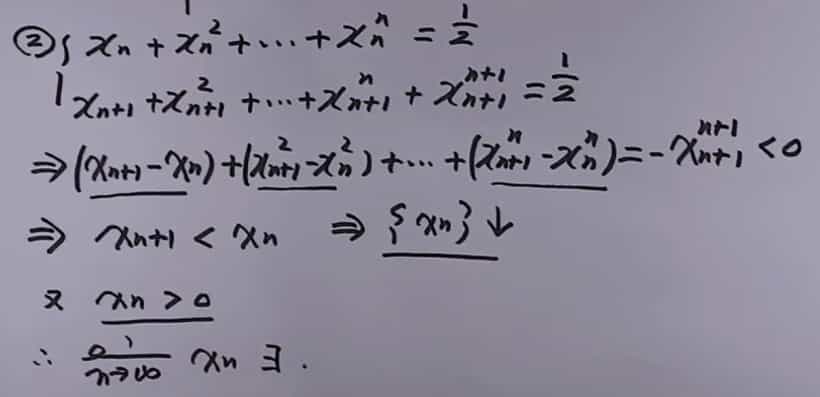 ② { xₙ + xₙ² + ⋯ + xₙⁿ = 1/2
xₙ₊₁ + xₙ₊₁² + ⋯ + xₙ₊₁ⁿ + xₙ₊₁ⁿ⁺¹ = 1/2
⇒ (xₙ₊₁ - xₙ) + (xₙ₊₁² - xₙ²) + ⋯ + (xₙ₊₁ⁿ - xₙⁿ) = - xₙ₊₁ⁿ⁺¹ < 0
⇒ xₙ₊₁ < xₙ ⇒ {xₙ} ↓
又 xₙ > 0
∴ n→∞ xₙ ∃ .